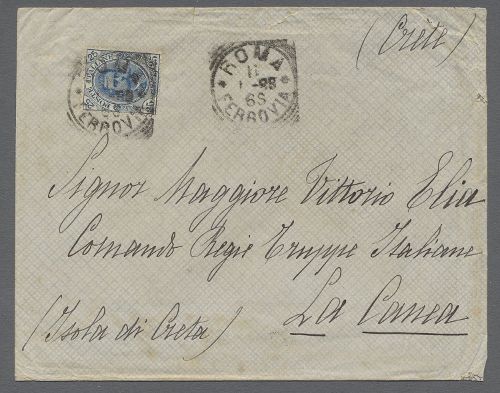 (Crète)
ROMA
FERROVIA
ROMA
11
1-98
6S
FERROVIA
Signor Maggiore Vittorio Elia
Comando Regie Truppe Italiane
La Canea
(Isola di Creta)